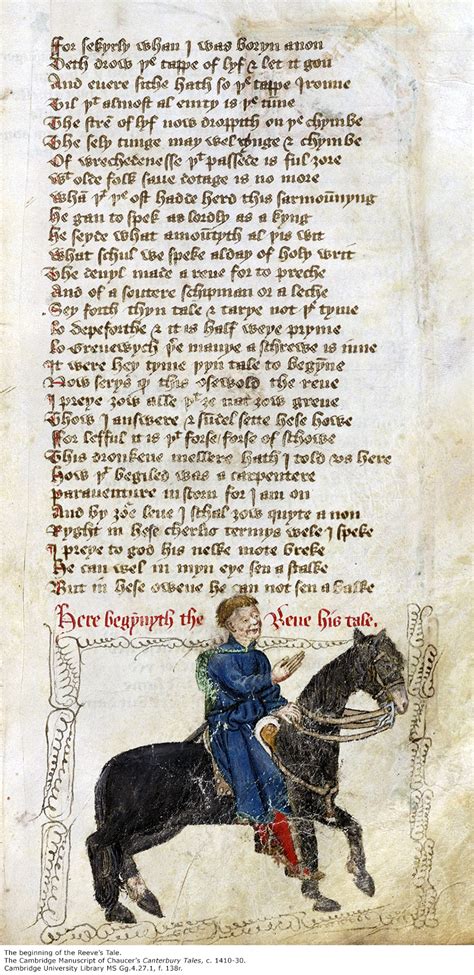 For sekyrly whan I was boryn anon
Deth drow þe tappe of lyf & let it gon
And euere sithe hath so þe tappe I ronne
Til þt almost al emty is þe tūne
The strem̄ of lyf now droppith on þe chymbe
The sely tunge may wel rynge & chymbe
Of wrechedenesse þt passede is ful ȝore
Wt olde folk saue dotage is no more
Whā þt þe ost hadde herd this sarmoūnyng
He gan to spek as lordly as a kyng
He seyde what amoūtyth al þis wit
What schul we speke alday of holy writ
The deuyl made a reue for to preche
And of a soutere schipman or a leche
Sey forth thyn tale & tarye not þe tyme
Lo depeforthe & it is half weye pryme
Lo Grenewych þer manye a schrewe is inne
It were hey tyme þyn tale to begȳne
Now serys q this Osewold the reue
I preye ȝow alle þt ȝe nat ȝow greue
Thow I answere & sūdel sette hese howe
For lefful it is wt forse forse of schowe
This dronkene mellere hath I told vs here
How þt begiled was a carpentere
Parauenture in scorn for I am on
And by ȝoure leue I schal ȝow quyte a non
Ryght in hese cherlis termys wele I speke
I preye to god his nekke mote breke
He can wel in myn eye sen a stalke
But in hese owene he can not sen a balke
Here begȳnyth the Reue his tale.
The beginning of the Reeve's Tale.
The Cambridge Manuscript of Chaucer's Canterbury Tales, c. 1410-30.
Cambridge University Library MS Gg.4.27.1, f. 138r.